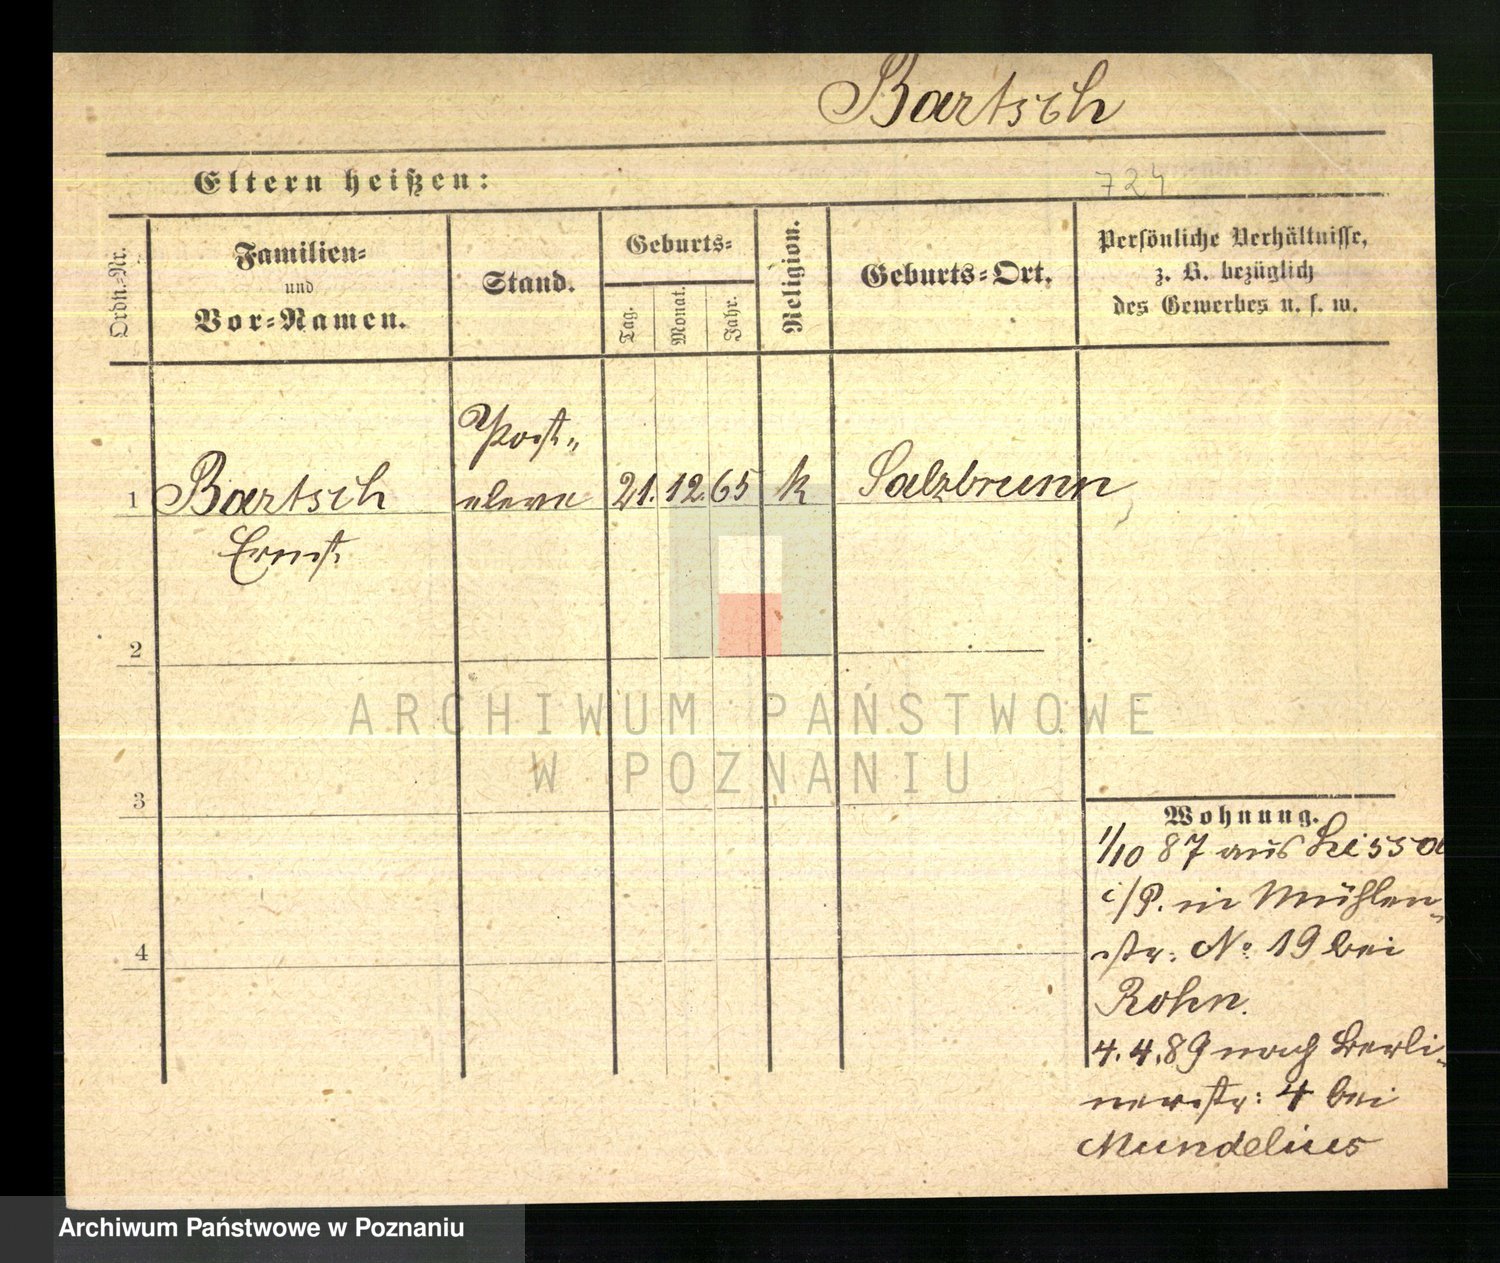 Bartsch
Eltern heißen:
724
Ordn.-Nr.
Familien-
und
Vor-Namen.
Stand.
Geburts-
Tag.
Monat.
Jahr.
Religion.
Geburts-Ort.
Persönliche Verhältnisse,
z. B. bezüglich
des Gewerbes u. s. w.
Post-
1 Bartsch eleve 21. 12. 65 k Salzbrunn
Ernst
2
ARCHIWUM PAŃSTWOWE
W POZNANIU
3
Wohnung.
1/10 87 aus Lissa
i/P. in Mühlen-
str: No 19 bei
Rohn.
4
4.4.89 nach Berli-
nerstr: 4 bei
Mundelius
Archiwum Państwowe w Poznaniu